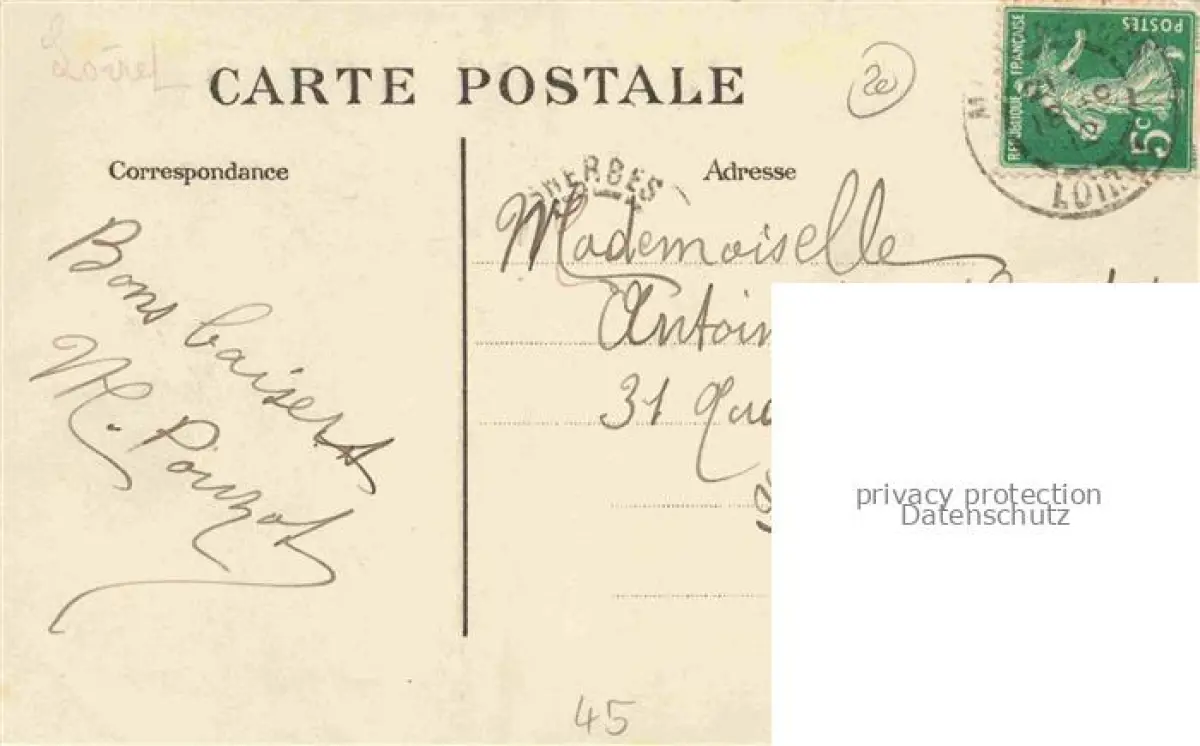 Loiret
CARTE POSTALE
20
RÉPUBLIQUE FRANÇAISE
POSTES
5c
LOIRET
Correspondance
Adresse
Bons baisers
M. Pouzot
Mademoiselle
Antoin
31 Qua
45
privacy protection
Datenschutz